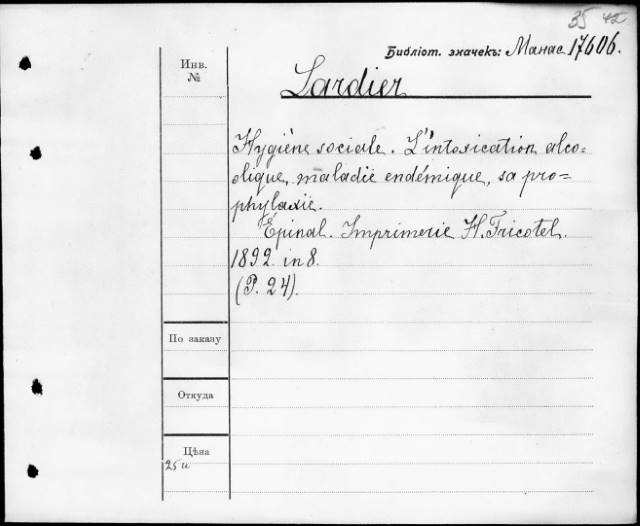 35 42
Библіот. значекъ: Манас 17606.
Инв.
№
Lardier
Hygiène sociale. L'intoxication alco=
olique, maladie endémique, sa pro=
phylaxie.
Épinal. Imprimerie H. Fricotel.
1892. in 8.
(P. 24).
По заказу
Откуда
Цѣна